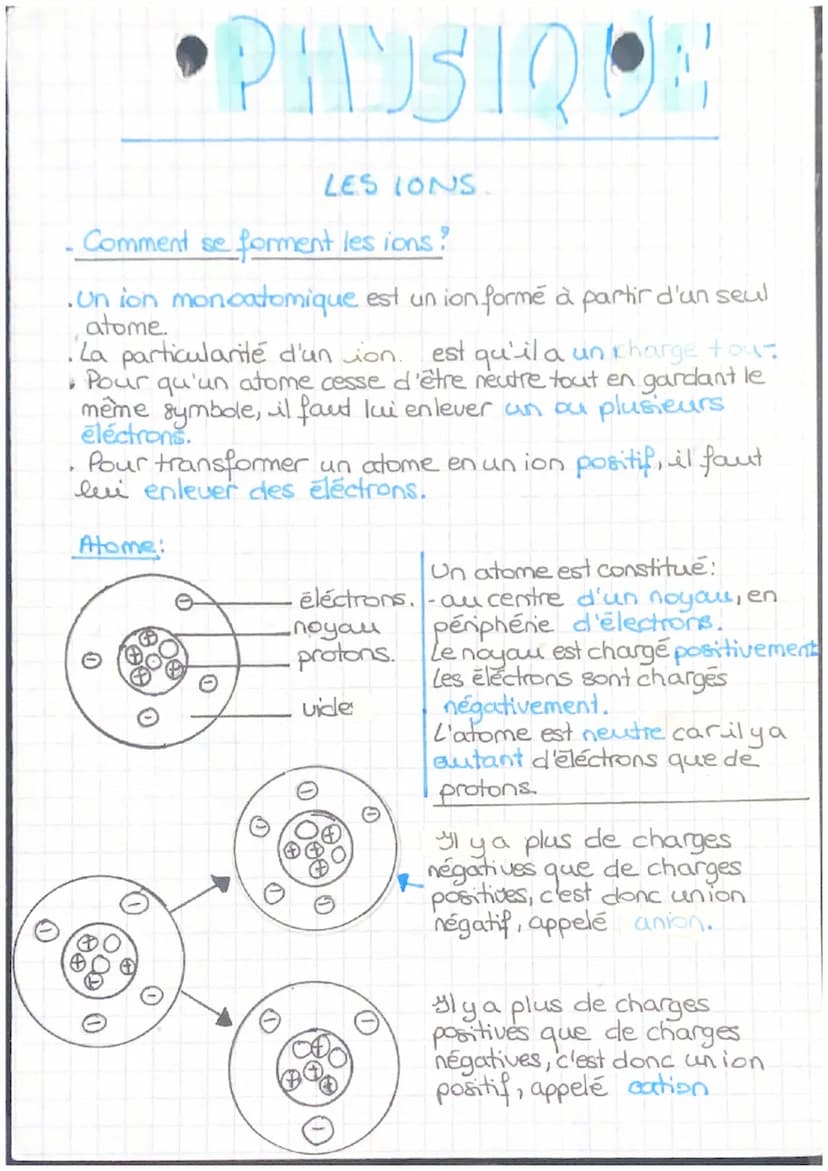 •PHYSIQUE
LES IONS.
- Comment se forment les ions?
.Un ion monoatomique est un ion formé à partir d'un seul
atome.
.La particularité d'un ion. est qu'il a un charge
. Pour qu'un atome cesse d'être neutre tout en gardant le
même symbole, il faut lui enlever un ou plusieurs
éléctrons.
. Pour transformer un atome en un ion positif, il faut
lui enlever des éléctrons.
Atome:
éléctrons.
noyau
protons.
vide
Un atome est constitué:
-au centre d'un noyau, en
périphérie d'électrons.
Le noyau est chargé positivement
Les éléctrons sont chargés
négativement.
L'atome est neutre car il y a
autant d'éléctrons que de
protons.
Il y a plus de charges
négatives que de charges
positives, c'est donc un ion
négatif, appelé anion.
Il y a plus de charges
positives que de charges
négatives, c'est donc un ion
positif, appelé cation